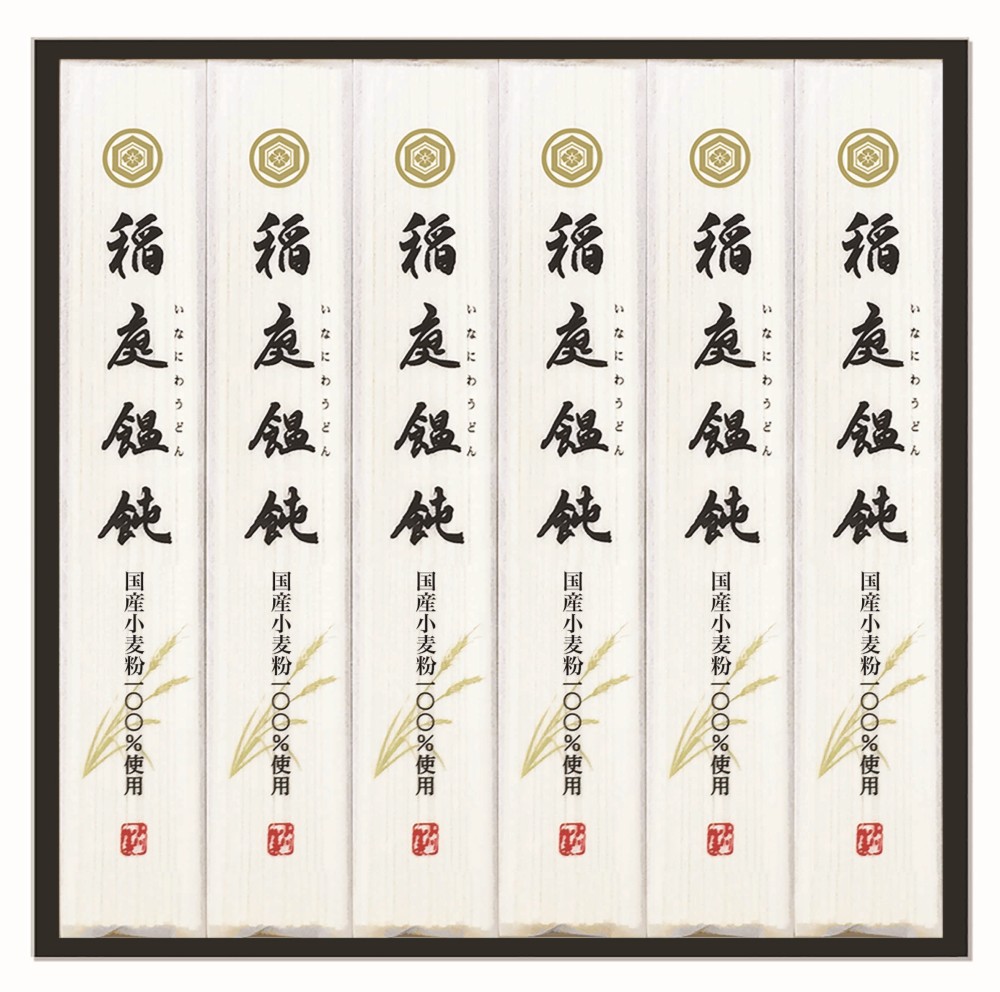 稲庭饂飩
いなにわうどん
国産小麦粉一〇〇%使用
稲庭饂飩
いなにわうどん
国産小麦粉一〇〇%使用
稲庭饂飩
いなにわうどん
国産小麦粉一〇〇%使用
稲庭饂飩
いなにわうどん
国産小麦粉一〇〇%使用
稲庭饂飩
いなにわうどん
国産小麦粉一〇〇%使用
稲庭饂飩
いなにわうどん
国産小麦粉一〇〇%使用